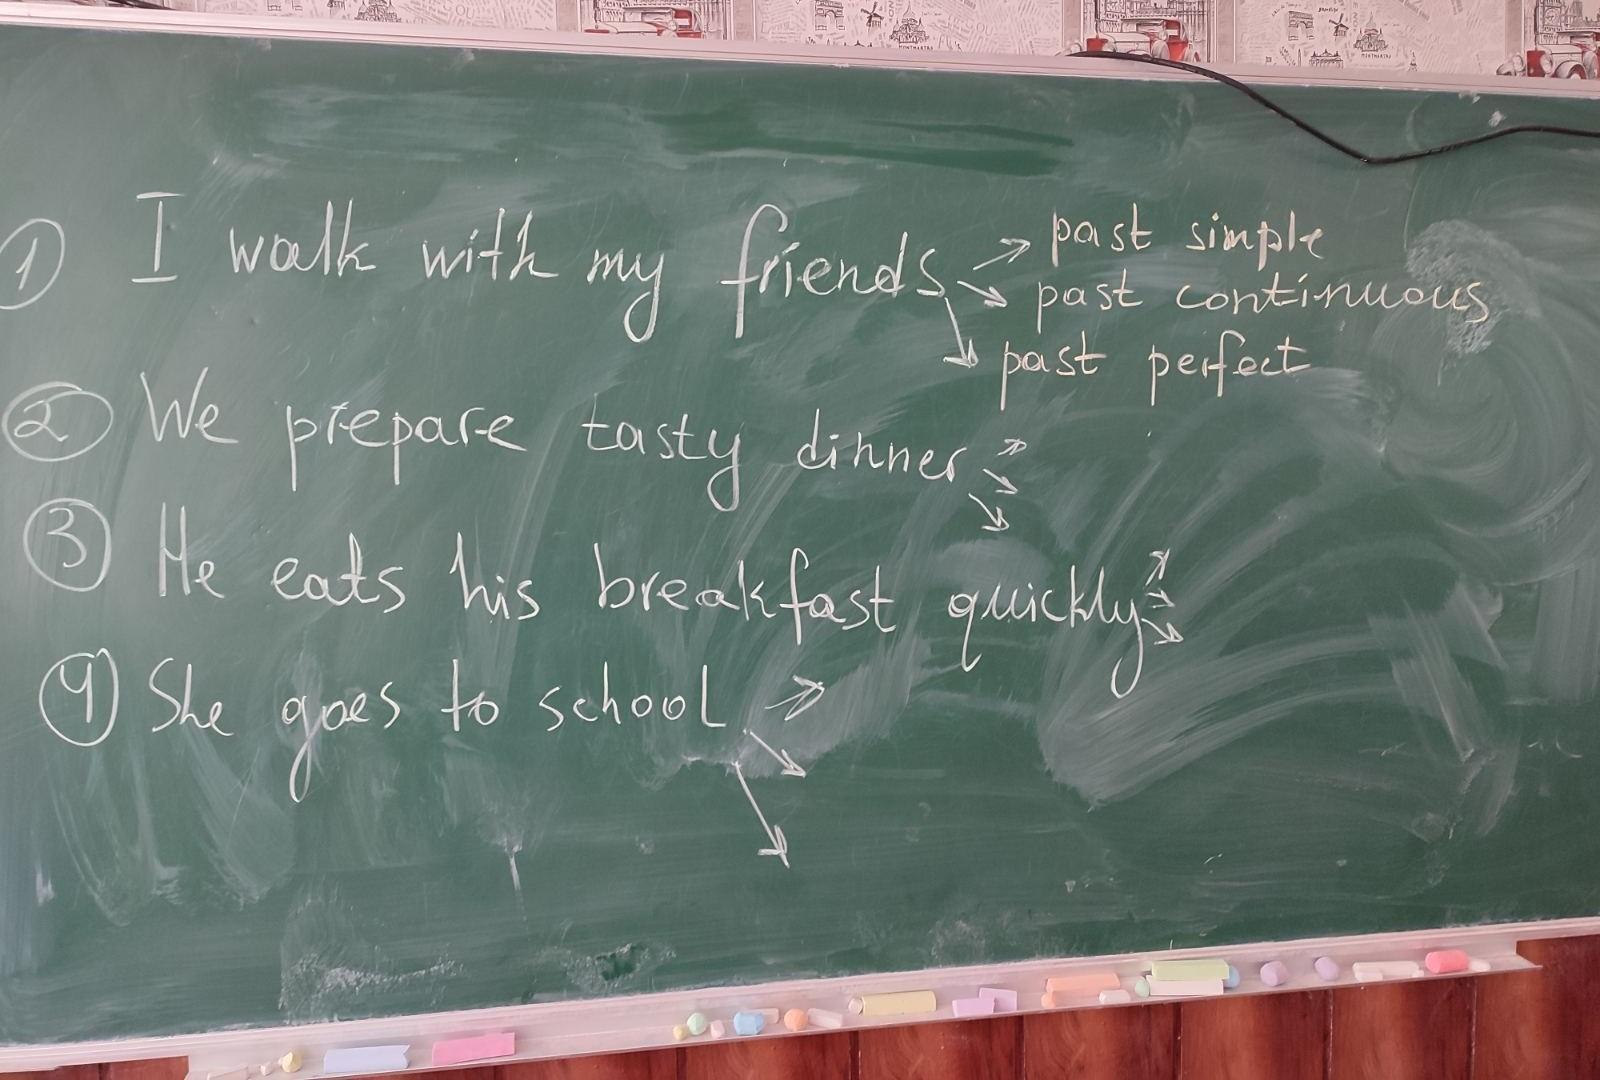 ① I walk with my friends → past simple
→ past continuous
→ past perfect
② We prepare tasty dinner
③ He eats his breakfast quickly
④ She goes to school